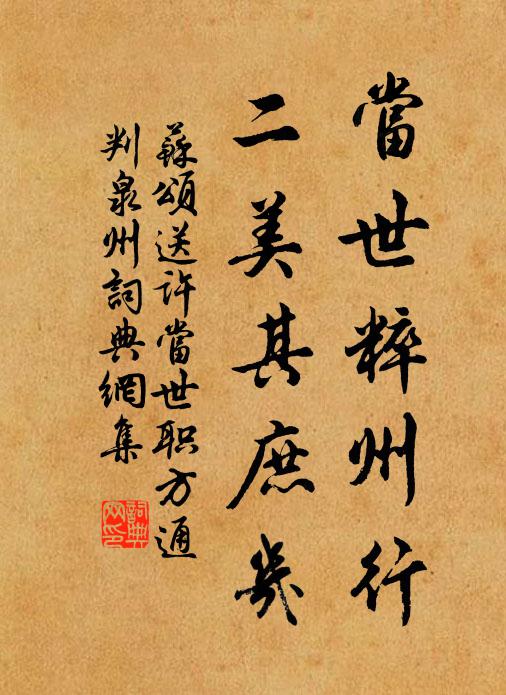 當世粹州行
二美其庶幾
蘇頌送許當世职方通
判泉州詞典網集
詞典
网印